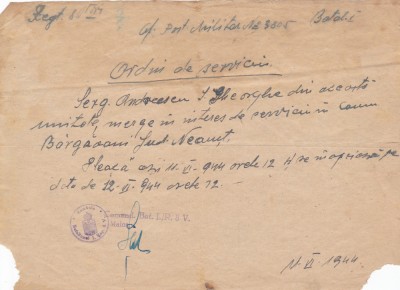 Of. Post. Militar No
Ordin de serviciu.
Serg. Andreescu I Gheorghe din aceasta
unitate, merge în interes de serviciu în com.
Bârgăoani Jud. Neamț.
Pleacă azi 11.VI.944 orele 12 și se înapoiază pe
data de 12.VI.944 orele 12.
11 VI 1944